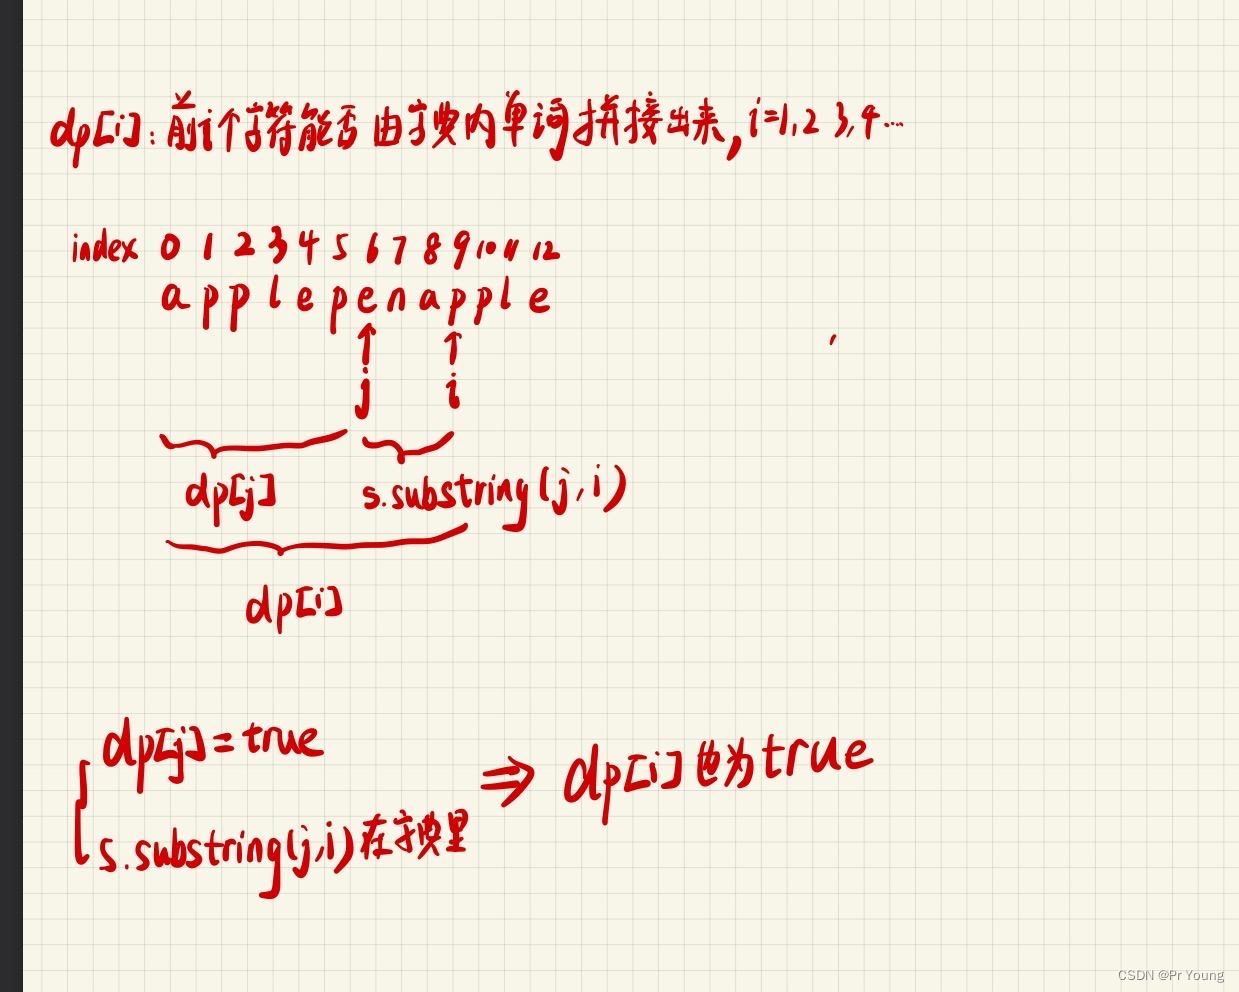 dp[i]:前i个字符能否由字典内单词拼接出来,i=1,2 3,4…
index 0 1 2 3 4 5 6 7 8 9 10 11 12
a p p l e p e n a p p l e
j i
dp[j] s.substring(j,i)
dp[i]
dp[j]=true
⇒ dp[i]也为true
s.substring(j,i)在字典里
CSDN @Pr Young